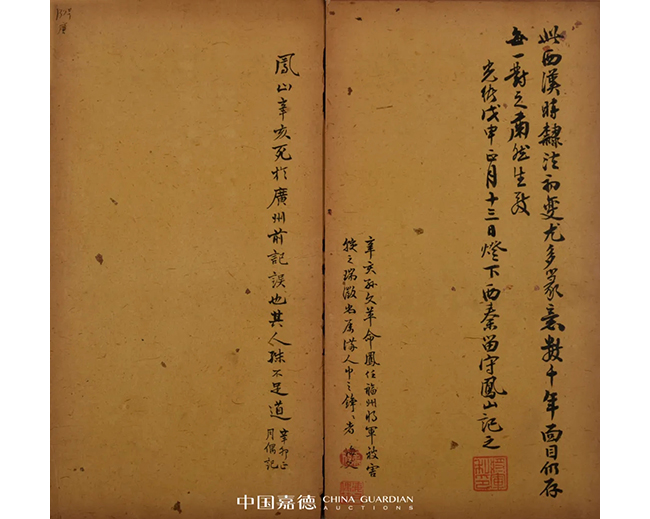 此西漢時隸法初變尤多篆意數千年面目仍存
每一對之肅然生敬
光緒戊申正月十三日燈下西秦留守鳳山記之
辛亥孫文革命鳳任福州將軍被害
較之瑞澂尚屬滿人中之錚々者
鳳山辛亥死於廣州前記誤也其人殊不足道
辛卯正
月偶記
中国嘉德 CHINA GUARDIAN
AUCTIONS